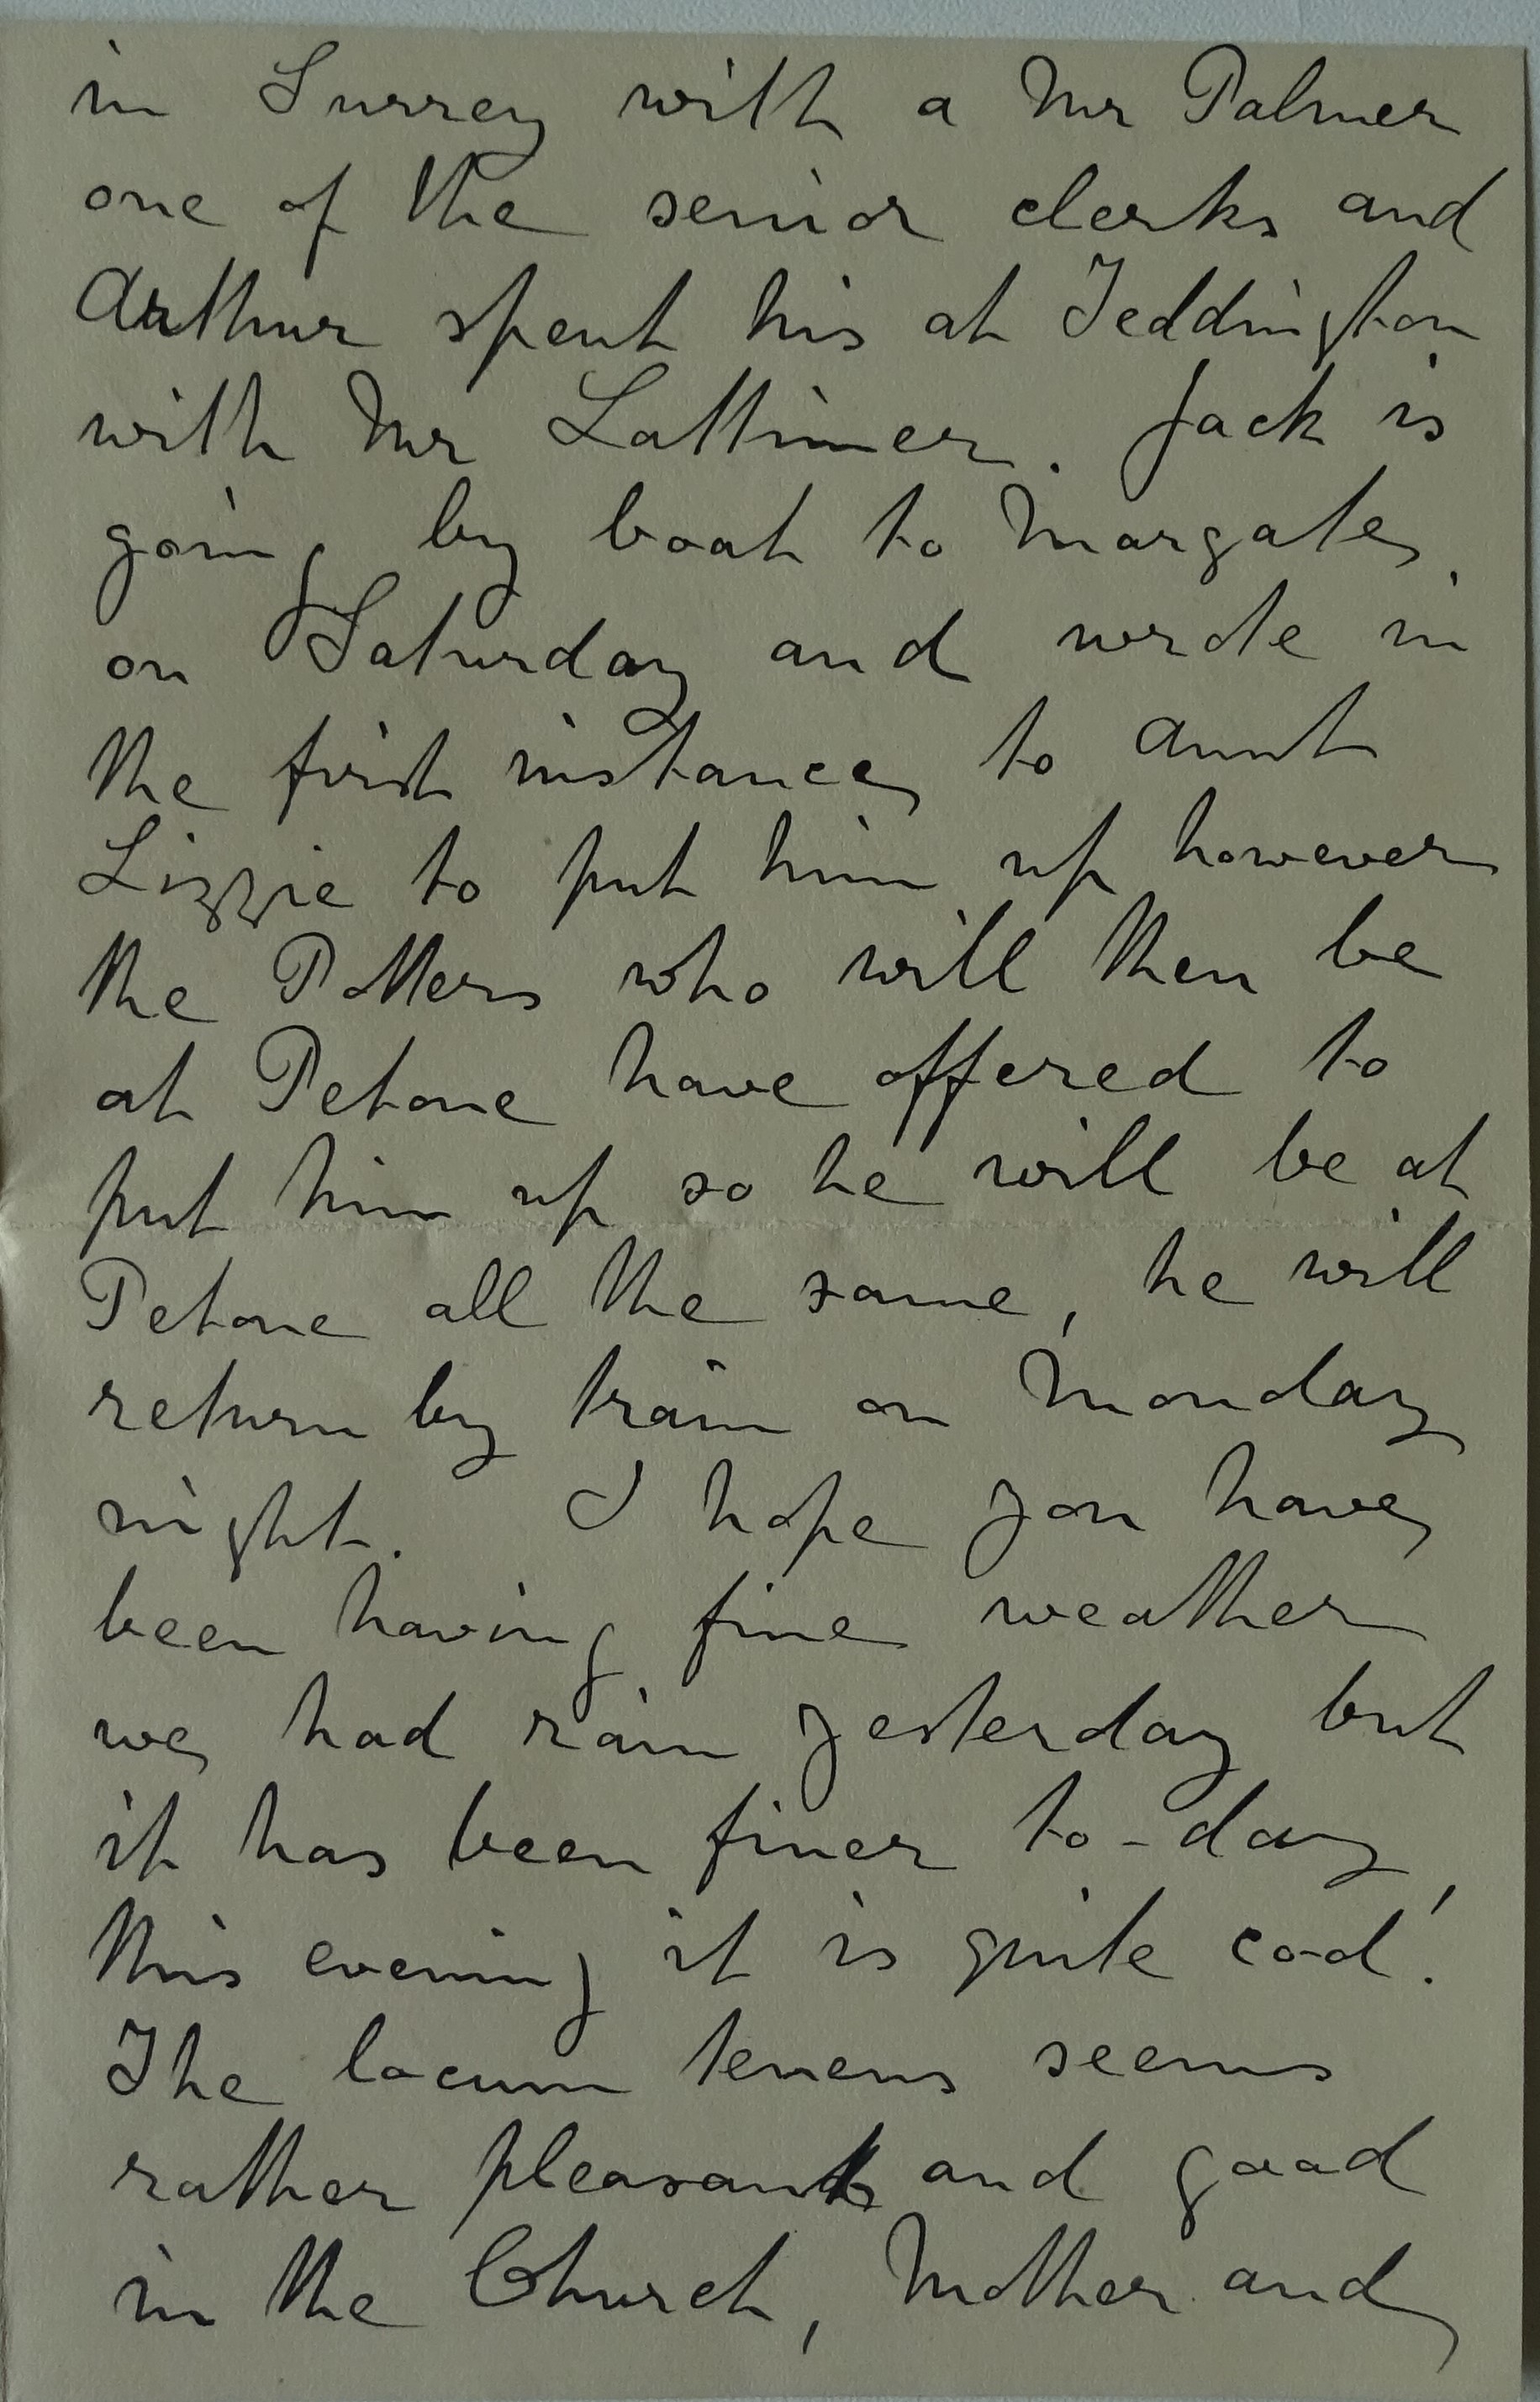 in Surrey with a Mr Palmer
one of the senior clerks and
Arthur spent his at Teddington
with Mr Lattimer. Jack is
going by boat to Margate
on Saturday and wrote in
the first instance to Aunt
Lizzie to put him up however
the Potters who will then be
at Petone have offered to
put him up so he will be at
Petone all the same, he will
return by train on Monday
night. I hope you have
been having fine weather
we had rain yesterday but
it has been finer to-day,
this evening it is quite cool.
The locum tenens seems
rather pleasant and good
in the Church, Mother and